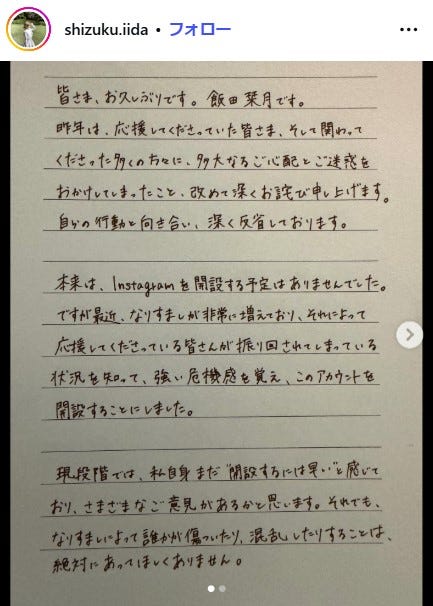 shizuku.iida • フォロー
皆さま、お久しぶりです。飯田栞月です。
昨年は、応援してくださっていた皆さま、そして関わって
くださった多くの方々に、多大なるご心配とご迷惑を
おかけしてしまったこと、改めて深くお詫び申し上げます。
自分の行動と向き合い、深く反省しております。
本来は、Instagramを開設する予定はありませんでした。
ですが最近、なりすましが非常に増えており、それによって
応援してくださっている皆さんが振り回されてしまっている
状況を知って、強い危機感を覚え、このアカウントを
開設することにしました。
現段階では、私自身まだ"開設するには早い"と感じて
おり、さまざまなご意見があるかと思います。それでも、
なりすましによって誰かが傷ついたり、混乱したりすることは、
絶対にあってほしくありません。